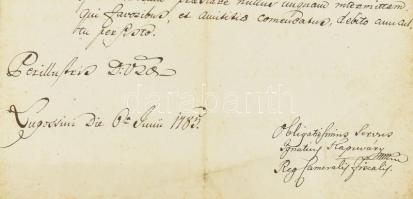 nullus unquam intermittam.
Qui favoribus, et amicitiae comendatus, debito
persisto.
Perillustris D.Vrae
Lugossini Die 6ta Junii 1785.
Obligatissimus Servus
Ignatius
Reg. Cameralis Fiscalis.
darabanth